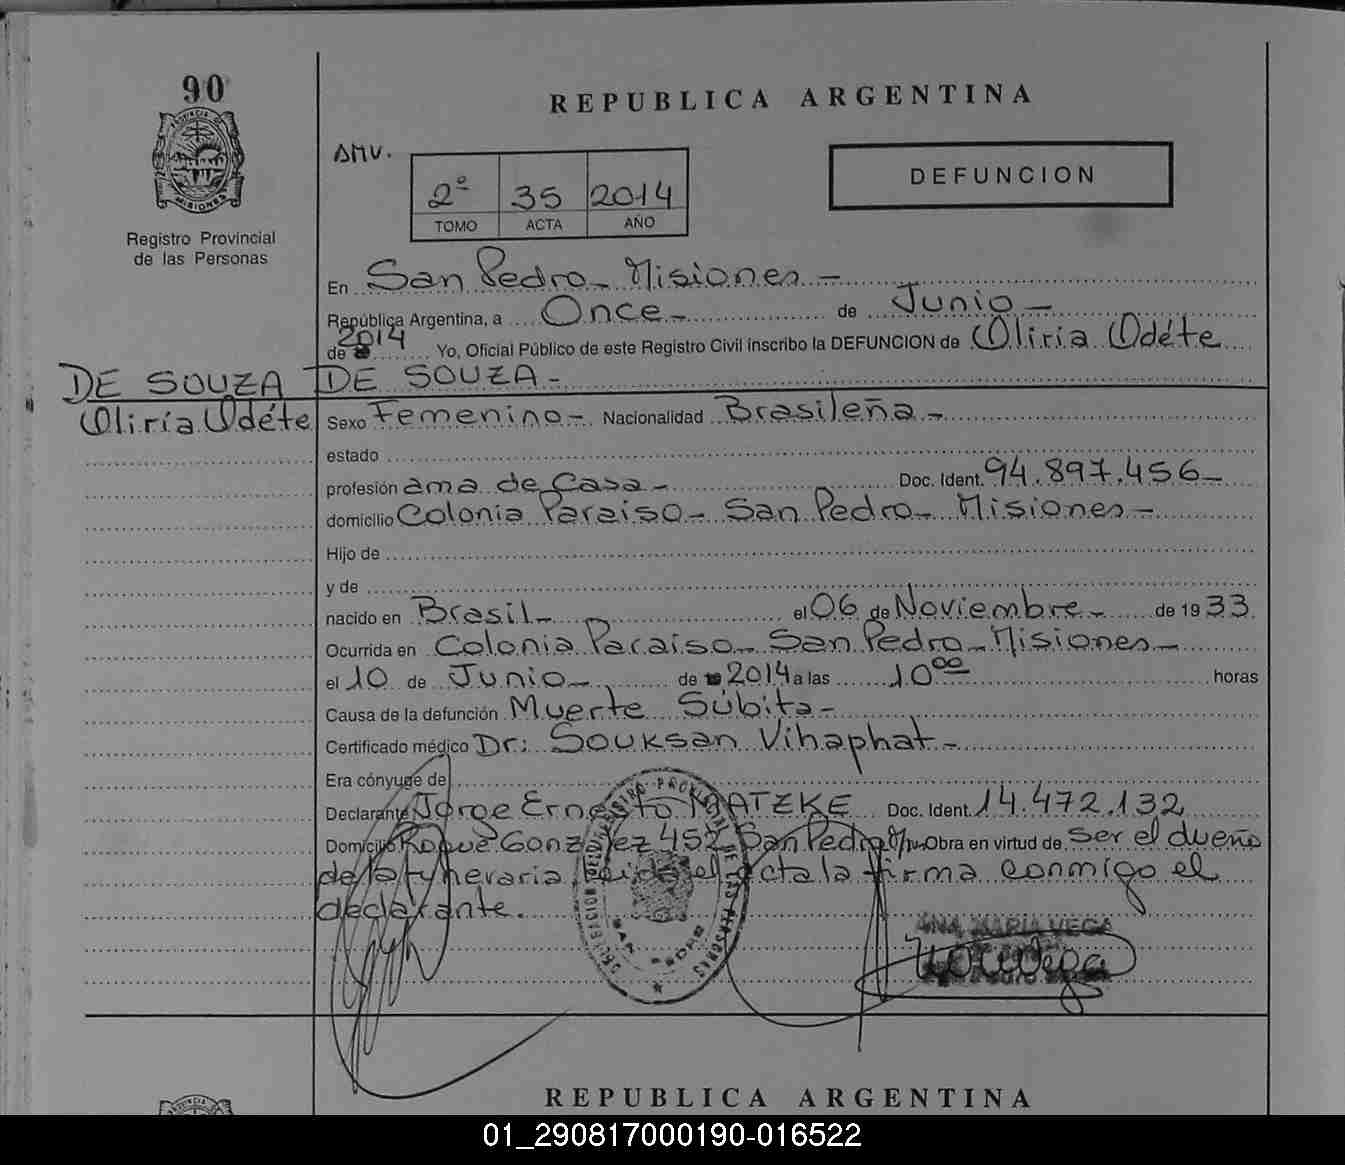 90
PROVINCIA DE
MISIONES
Registro Provincial
de las Personas
REPUBLICA ARGENTINA
AMV.
2º 35 2014
TOMO ACTA AÑO
DEFUNCION
En San Pedro - Misiones -
República Argentina, a Once - de Junio -
de 2014 Yo, Oficial Público de este Registro Civil inscribo la DEFUNCION de Oliria Odéte
DE SOUZA -
DE SOUZA
Oliría Odéte
Sexo Femenino - Nacionalidad Brasileña -
estado
profesión ama de Casa - Doc. Ident. 94.897.456 -
domicilio Colonia Paraiso - San Pedro - Misiones -
Hijo de
y de
nacido en Brasil - el 06 de Noviembre - de 19 33
Ocurrida en Colonia Paraiso - San Pedro - Misiones -
el 10 de Junio - de 2014 a las 10 00 horas
Causa de la defunción Muerte Súbita -
Certificado médico Dr: Souksan Vihaphat -
Era cónyuge de
Declarante Jorge Ernesto MATZKE Doc. Ident. 14.472.132
Domicilio Roque Gonzalez 452 San Pedro Mnes Obra en virtud de ser el dueño
de la funeraria leida el acta la firma conmigo el
declarante.
DELEGACION DEL REGISTRO PROVINCIAL DE LAS PERSONAS
SAN PEDRO
ANA MARIA VEGA
REPUBLICA ARGENTINA
01_290817000190-016522